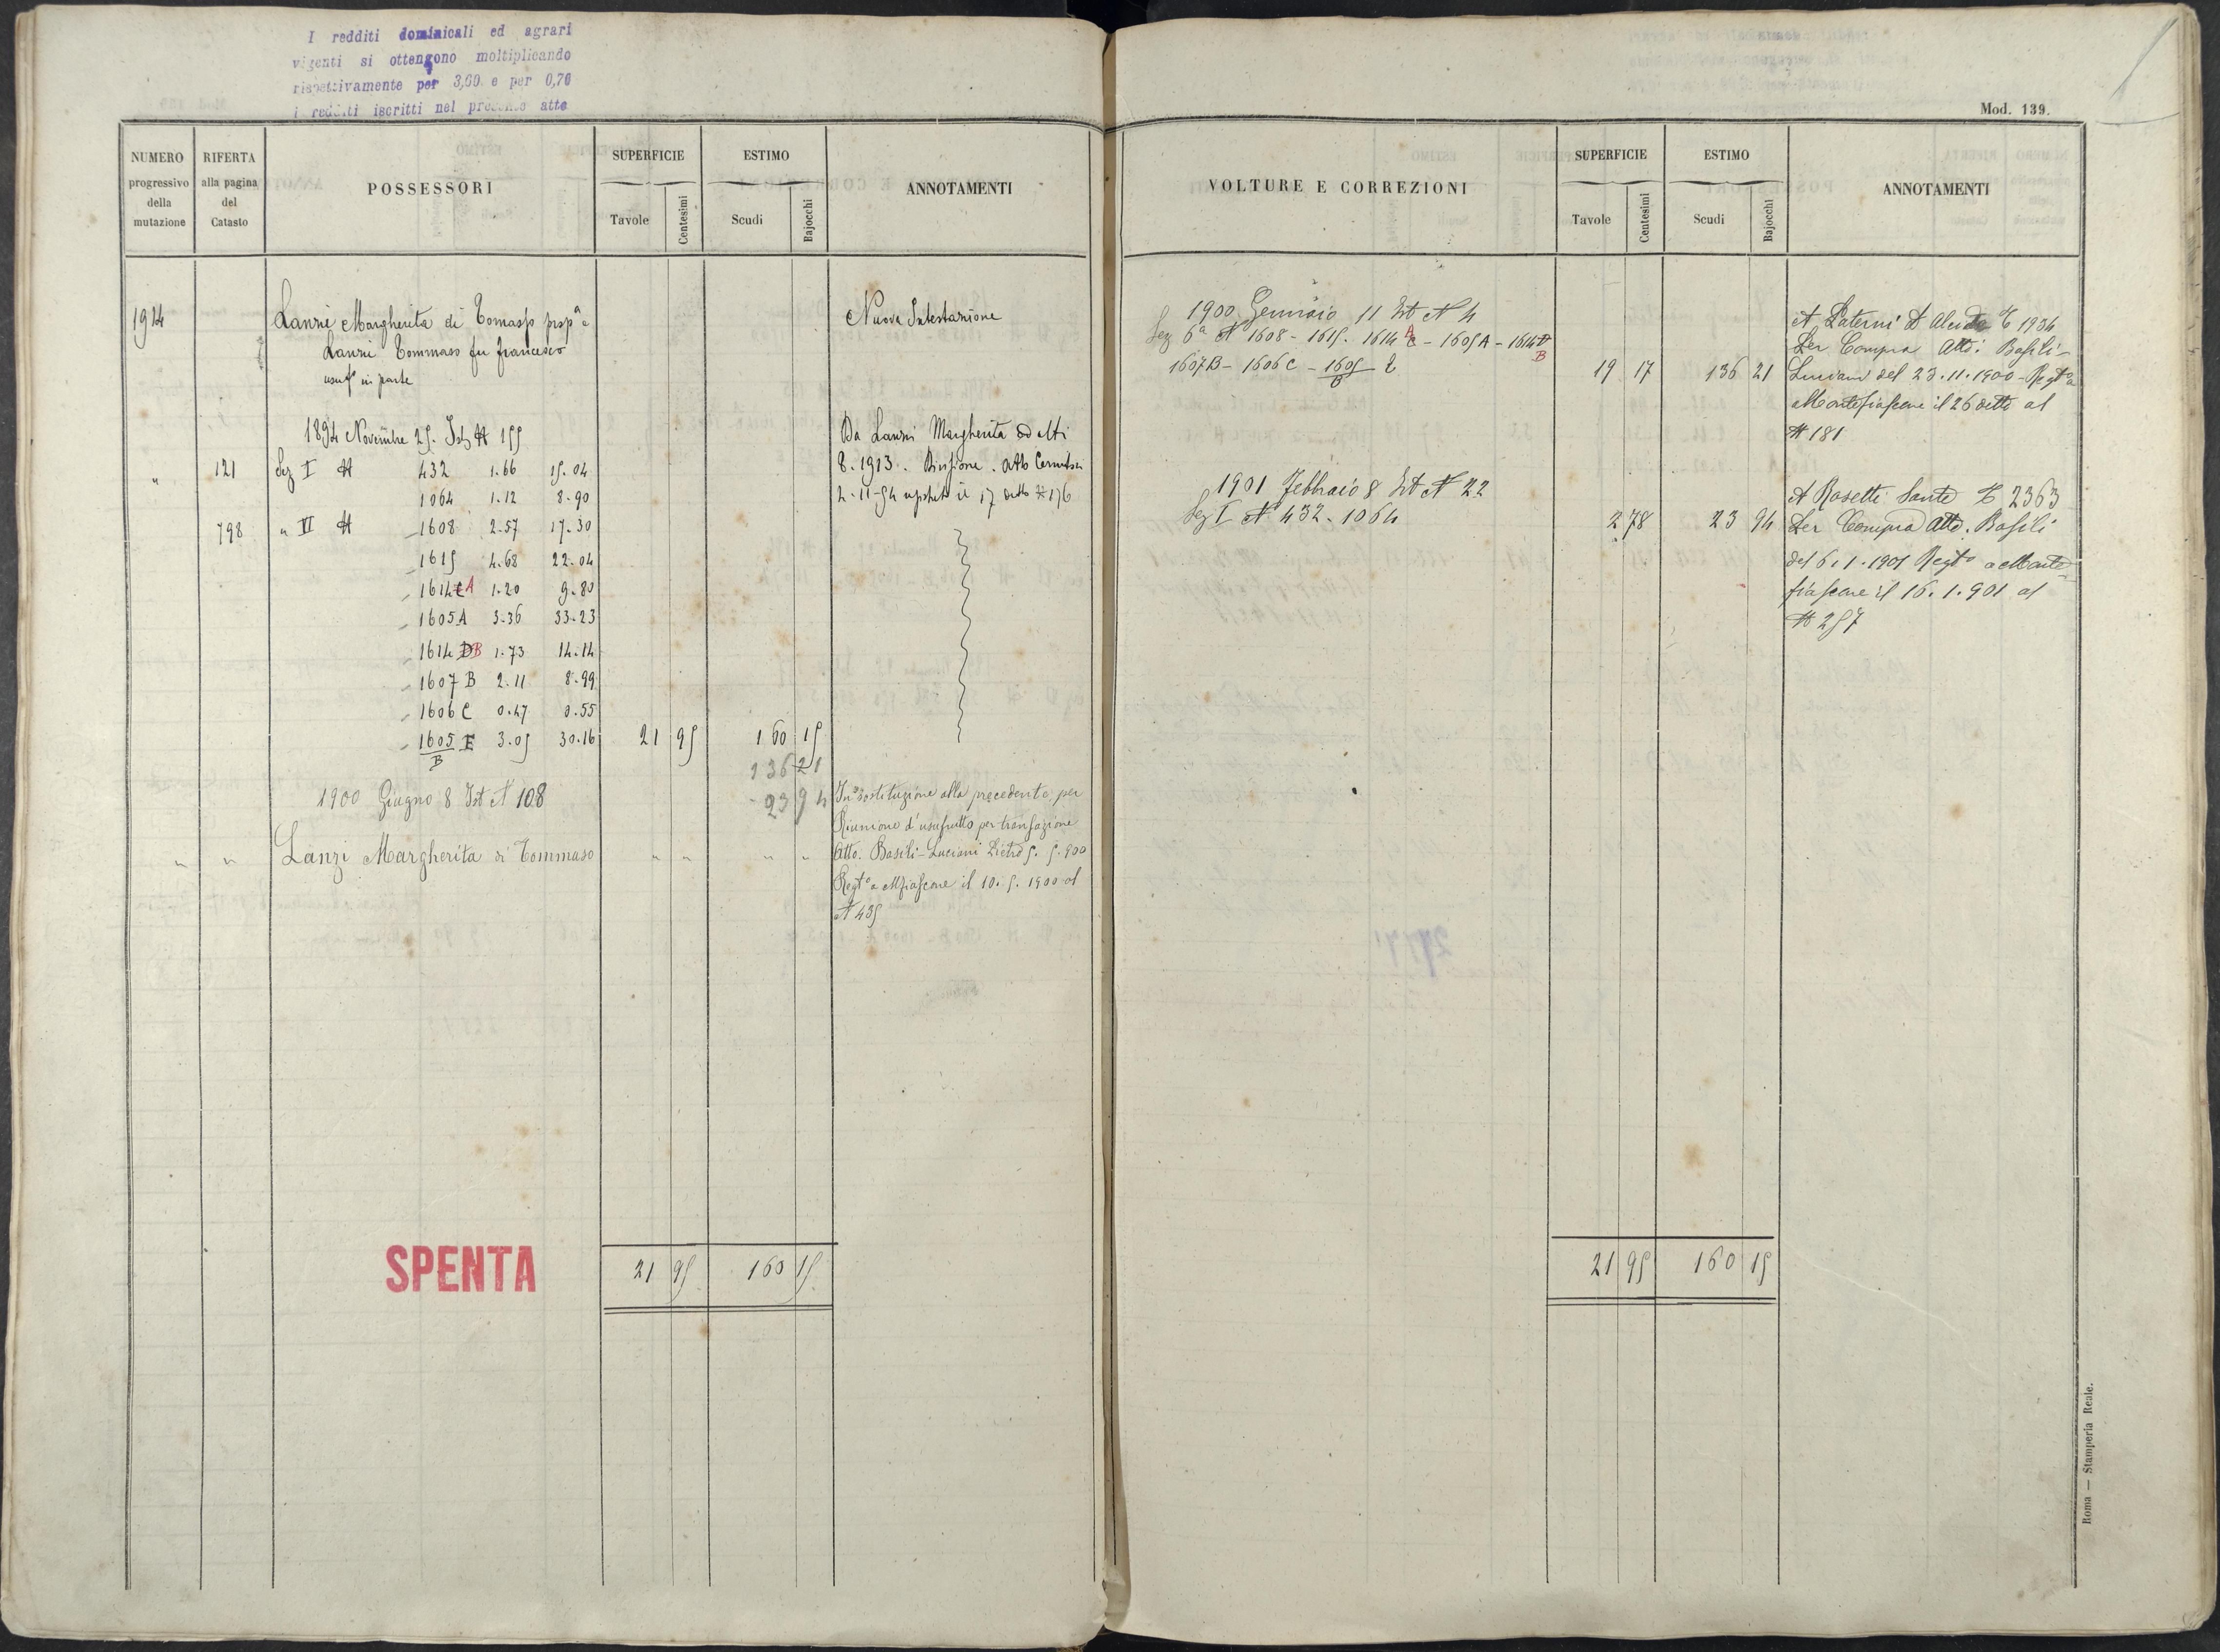 I redditi dominicali ed agrari
vigenti si ottengono moltiplicando
rispettivamente per 3,60 e per 0,70
i redditi iscritti nel presente atto
Mod. 139.
NUMERO progressivo della mutazione
RIFERTA alla pagina del Catasto
POSSESSORI
SUPERFICIE
Tavole Centesimi
ESTIMO
Scudi Bajocchi
ANNOTAMENTI
1914 Lanzi Margherita di Tomasso propª e
Lanzi Tommaso fu Francesco
usufº in parte
Nuova Intestazione
1894 Novembre 25. Ist N 155
" 121 Sez I N 432 1.66 15.04
1064 1.12 8.90
798 " VI N 1608 2.57 17.30
1615 4.68 22.04
1614 C A 1.20 9.80
1605 A 3.36 33.23
1614 D B 1.73 14.14
1607 B 2.11 8.99
1606 C 0.47 0.55
1605 E 3.05 30.16 21 95 160 15
B
136 21
23 94
Da Lanzi Margherita ed altri
8.1913. Divisione. Atto
2-11-94 il 17 detto N 176
1900 Giugno 8 Ist N 108
" " Lanzi Margherita di Tommaso " " " "
In sostituzione alla precedente, per
Riunione d'usufrutto per transazione
Atto. Basili-Luciani Pietro 5. 5. 900
Regtº a Mfiascone il 10. 5. 1900 al
N 435
SPENTA
21 95 160 15
VOLTURE E CORREZIONI
SUPERFICIE
Tavole Centesimi
ESTIMO
Scudi Bajocchi
ANNOTAMENTI
1900 Gennaio 11 Ist N 4
Sez 6ª N 1608 - 1615. 1614 C A - 1605 A - 1614 D B
1607 B - 1606 C - 1605 E 19 17 136 21
B
A Paterni Alcide 1934
Per Compra Atto: Basili-
Luciani del 23.11.1900 - Regtº a
Montefiascone il 26 detto al
N 181
1901 Febbraio 8 Ist N 22
Sez I N 432 - 1064 2 78 23 94
A Rosetti Sante 2363
Per Compra Atto. Basili
del 6.1.1901 Regtº a Monte=
fiascone il 16.1.901 al
N 257
21 95 160 15
Roma — Stamperia Reale.